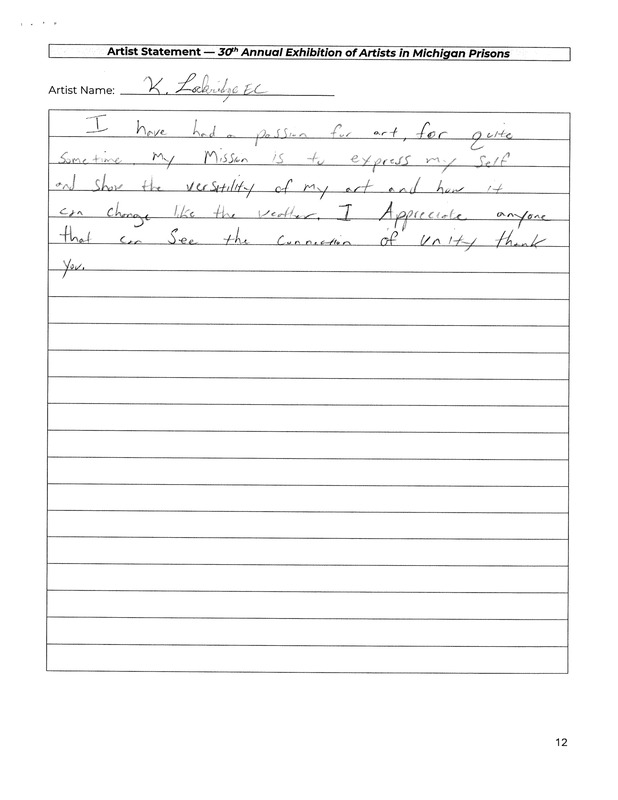 Artist Statement — 30th Annual Exhibition of Artists in Michigan Prisons
Artist Name: K. Lockridge EC
I have had a passion for art, for quite
Sometime. My Misson is to express my Self
and show the verstility of my art and how it
can change like the weather. I Appreciate anyone
that can See the Connection of unity thank
you.
12